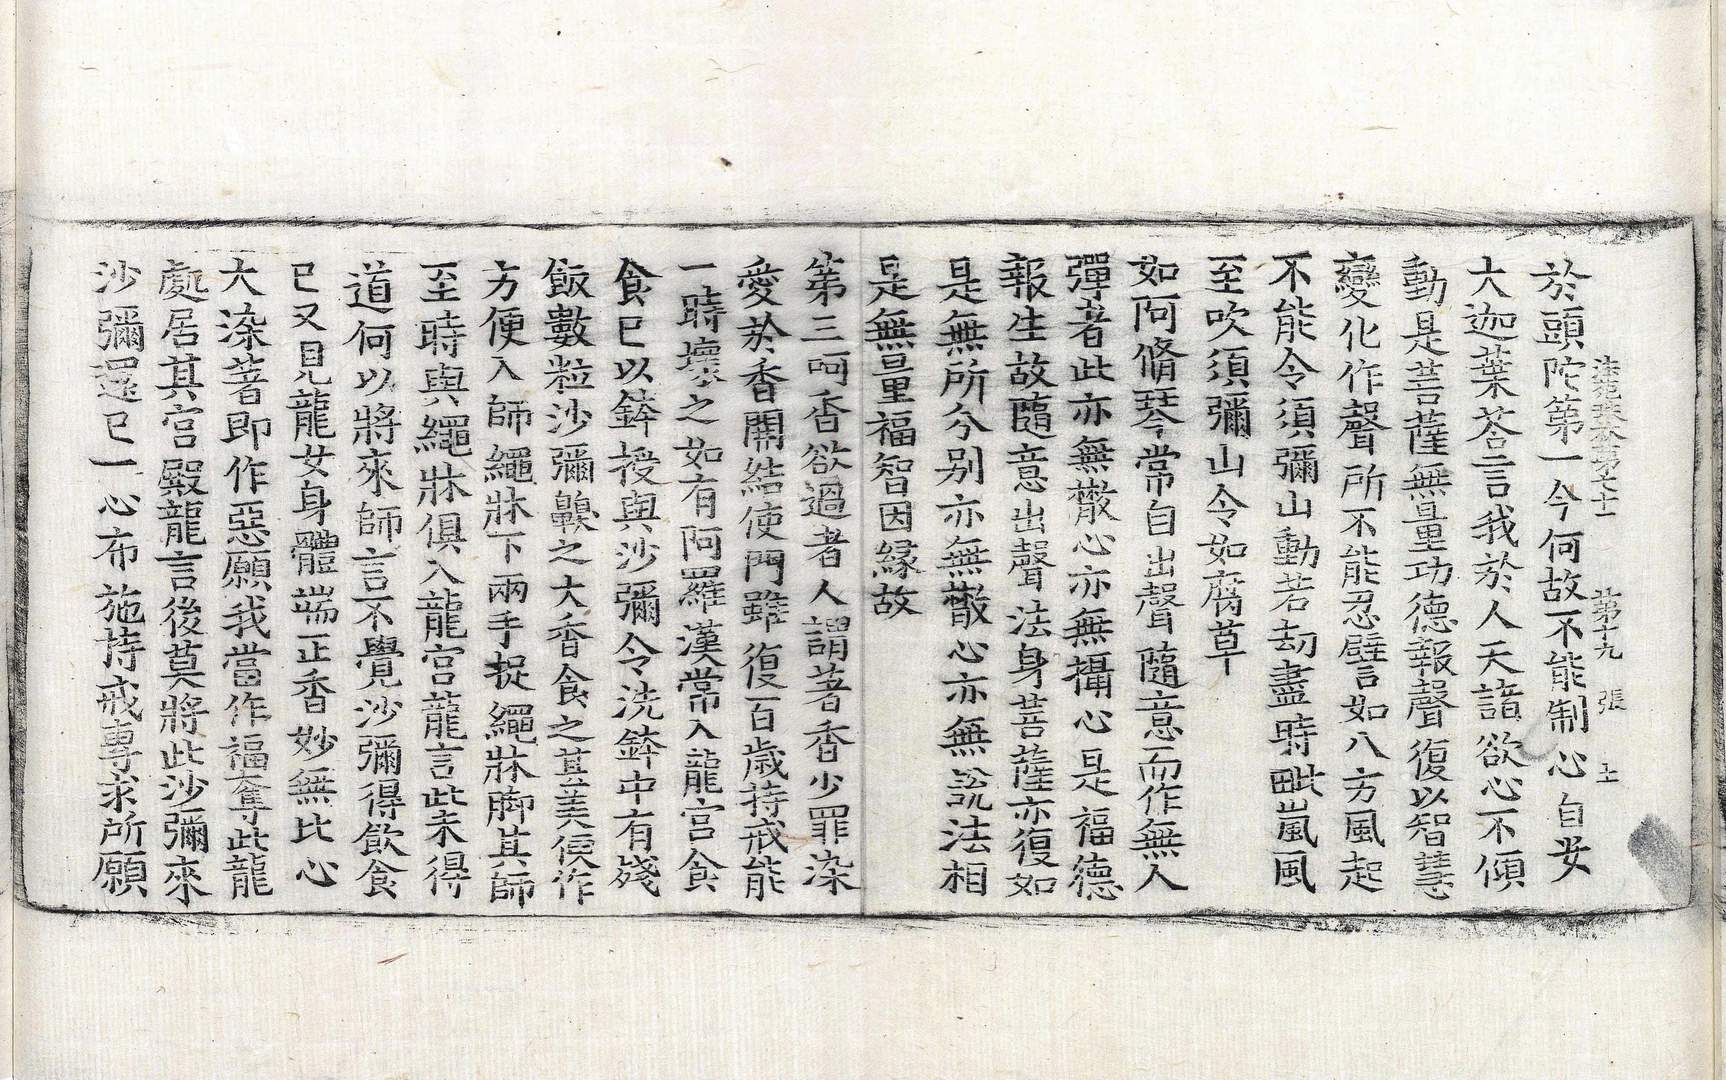 於頭陀第一今何故不能制心自安
法苑珠林第七十一 第十九張 士
大迦葉荅言我於人天諸欲心不傾
動是菩薩無量功德報聲復以智慧
變化作聲所不能忍譬如八方風起
不能令須彌山動若劫盡時毗嵐風
至吹須彌山令如腐草
如阿脩琴常自出聲隨意而作無人
彈者此亦無散心亦無攝心是福德
報生故隨意出聲法身菩薩亦復如
是無所分别亦無散心亦無說法相
是無量福智因緣故
第三呵香欲過者人謂著香少罪染
愛於香開結使門雖復百歲持戒能
一時壞之如有阿羅漢常入龍宮食
食已以鉢授與沙彌令洗鉢中有殘
飯數粒沙彌齅之大香食之甚美便作
方便入師繩牀下兩手捉繩牀脚其師
至時與繩牀俱入龍宮龍言此未得
道何以將來師言不覺沙彌得飲食
已又見龍女身體端正香妙無比心
大染著即作惡願我當作福奪此龍
處居其宮殿龍言後莫將此沙彌來
沙彌還已一心布施持戒專求所願